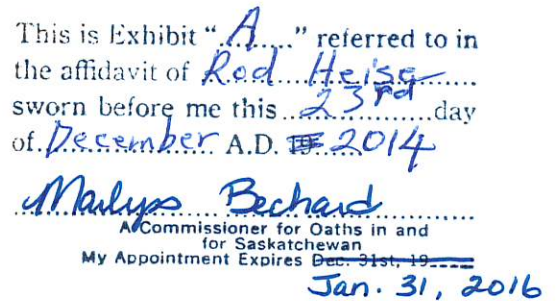 This is Exhibit "A" referred to in
the affidavit of Rod Heise
sworn before me this 23rd day
of December A.D. 19 2014
Marlyss Bechard
A Commissioner for Oaths in and
for Saskatchewan
My Appointment Expires Dec. 31st, 19
Jan. 31, 2016